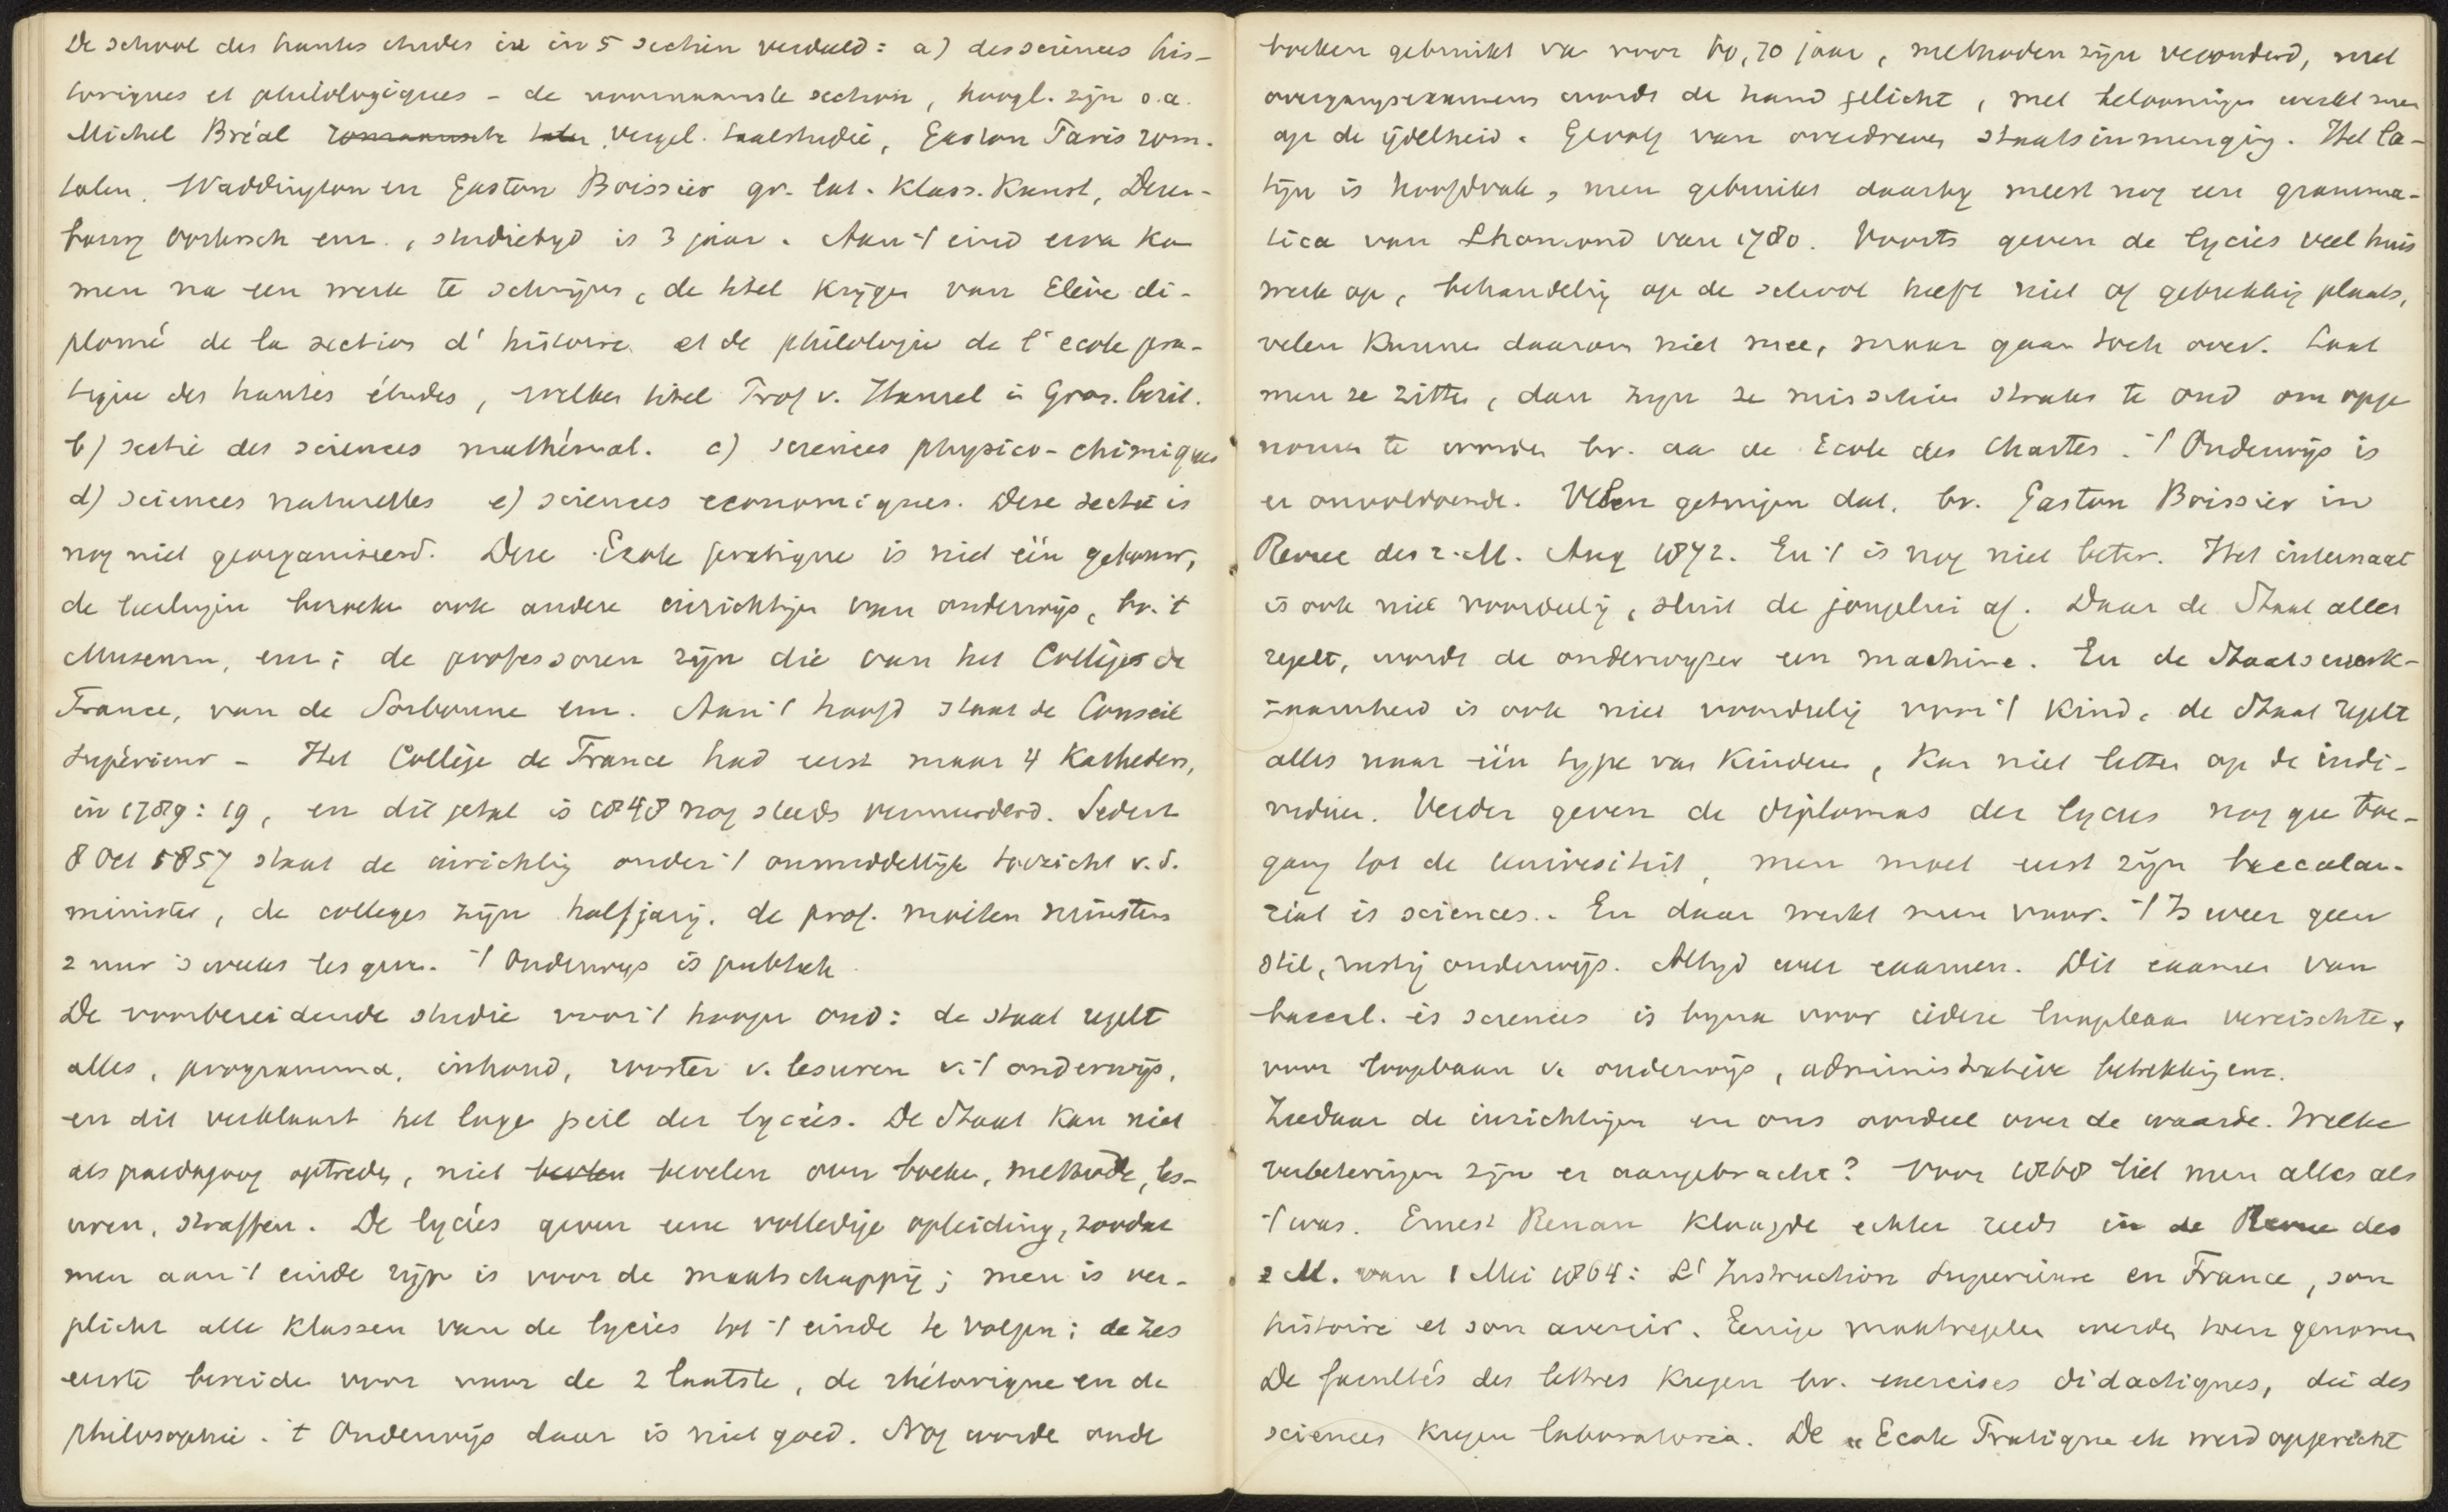 De school des hautes etudes is in 5 sectien verdeeld: a) des sciences his-
toriques et philologiques - de voornaamste section, hoogl. zijn o.a.
Michel Bréal romaansche talen vergel. taalstudie, Gaston Paris rom.
talen. Waddington en Gaston Boissier gr. lat. klass. kunst, Deren-
bourg oostersch enz., studietyd is 3 jaar. Aan 't eind erva ka
men na een werk te schrijven, de titel krijgen van Elève di-
plomé de la section d' histoire et de philologie de l' ecole pra-
tique des hautes études, welken titel Prof v. Hamel in Gron. bezit.
b) sectie des sciences mathémat. c) sciences physico-chimiques
d) sciences naturelles e) sciences economiques. Deze sectie is
nog niet georganiseerd. Deze Ecole pratique is niet één gebouw,
de leerlingen bezoeke ook andere inrichtingen van onderwijs, bv. 't
Museum, enz; de professoren zijn die van het Collège de
France, van de Sorbonne enz. Aan 't hoofd staat de Conseil
Supérieur - Het Collège de France had eerst maar 4 Katheders,
in 1789: 19, en dit getal is 1848 nog steeds vermeerderd. Sedert
8 Oct 1857 staat de inrichting onder 't onmiddellijk toezicht v.d.
minister, de colleges zijn halfjarig. de prof. moeten minstens
2 uur 's weeks les geven. 't Onderwijs is publiek.
De voorbereidende studie voor 't hooger ond: de staat regelt
alles, programma, inhoud, rooster v. lesuren v. 't onderwijs,
en dit verklaart het lage peil der lycées. De Staat kan niet
als paedagoog optreden, niet bevelen over boeken, methode, les-
uren, straffen. De lycées geven eene volledige opleiding, zoodat
men aan 't einde rijp is voor de maatschappij; men is ver-
plicht alle klassen van de lycées tot 't einde te volgen; de zes
eerste bereiden voor naar de 2 laatste, de rhétorique en de
philosophie. 't Onderwijs daar is niet goed. Nog worde oude
boeken gebruikt va voor 60, 70 jaar, methoden zijn verouderd, met
overgangsexamens wordt de hand gelicht, met belooningen werkt men
op de ijdelheid. Gevolg van overdreven staatsinmenging. Het La-
tijn is hoofdvak, men gebruikt daarby meest nog een gramma-
tica van Lhomond van 1780. Voorts geven de lycées veel huis
werk op, behandeling op de school heeft niet of gebrekkig plaats,
velen kunnen daarom niet mee, maar gaan toch over. Laat
men ze zitten, dan zijn ze misschien straks te oud om opge
nomen te worden bv. aa de Ecole des Chartes. 't Onderwijs is
er onvoldoende. Velen getuigen dat, bv. Gaston Boissier in
Revue des 2. M. Aug 1872. En 't is nog niet beter. Het internaat
is ook niet voordeelig, sluit de jongelui af. Daar de Staat alles
regelt, wordt de onderwijzer een machine. En de Staatswerk-
zaamheid is ook niet voordeelig voor 't kind, de Staat regelt
alles naar één type van kinderen, kan niet letten op de indi-
viduen. Verder geven de diplomas der lycées nog gee toe-
gang tot de universiteit, men moet eerst zijn baccalau-
réat ès sciences. En daar werkt men voor. 't Is weer geen
stil, rustig onderwijs. Altijd weer examen. Dit examen van
baccal. ès sciences is bijna voor iedere loopbaan vereischte,
voor loopbaan v. onderwijs, administratieve betrekking enz.
Ziedaar de inrichtingen en ons oordeel over de waarde. Welke
verbeteringen zijn er aangebracht? Voor 1868 liet men alles als
't was. Ernest Renan klaagde echter reeds in de Revue des
2 M. van 1 Mei 1864: L' Instruction Superieure en France, son
histoire et son avenir. Eenige maatregelen werden toen genomen
De facultés des lettres kregen bv. exercises didactiques, die des
sciences kregen laboratoria. De "Ecole Pratique etc werd opgericht